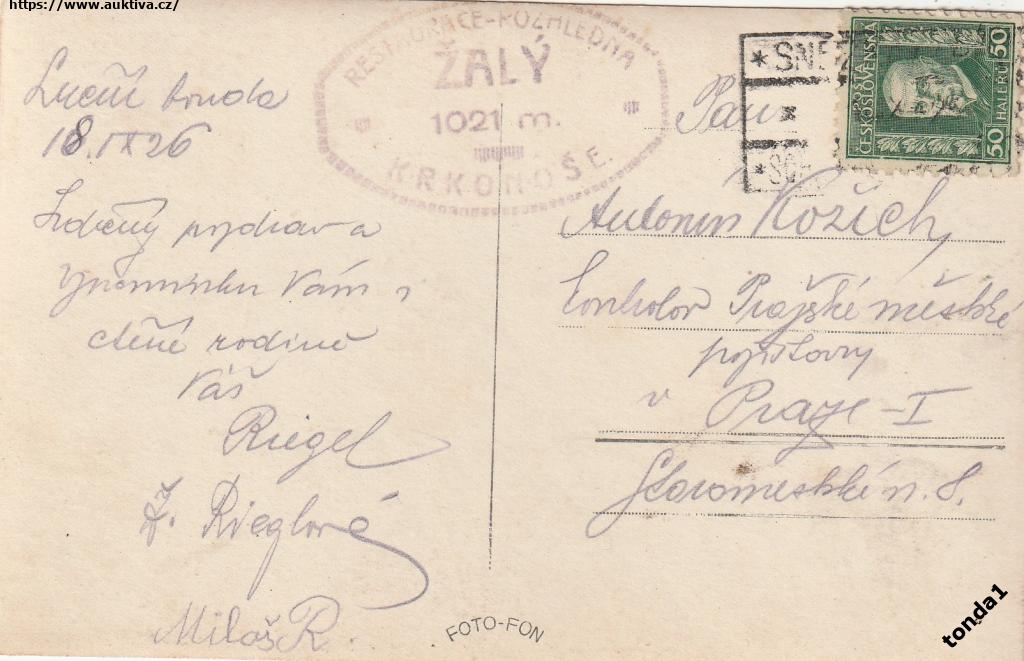 https://www.auktiva.cz/
RESTAURACE-ROZHLEDNA
ŽALÝ
1021 m.
KRKONOŠE.
Luční bouda
18. IX 26
Srdečný pozdrav a
vzpomínku Vám i
ctěné rodině
Váš
Riegel
Ž. Rieglová
Miloš R.
FOTO-FON
ČESKOSLOVENSKÁ
50 HALÉŘŮ 50
Pan
Antonín Kožích,
kontrolor Pražské městské
pojišťovny
v Praze-I
Staroměstské n. 8.
tonda1